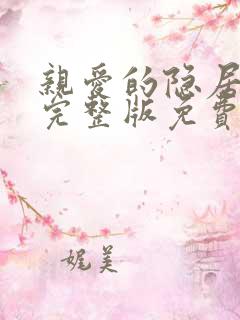 親愛的隐居
完整版免費
娓美